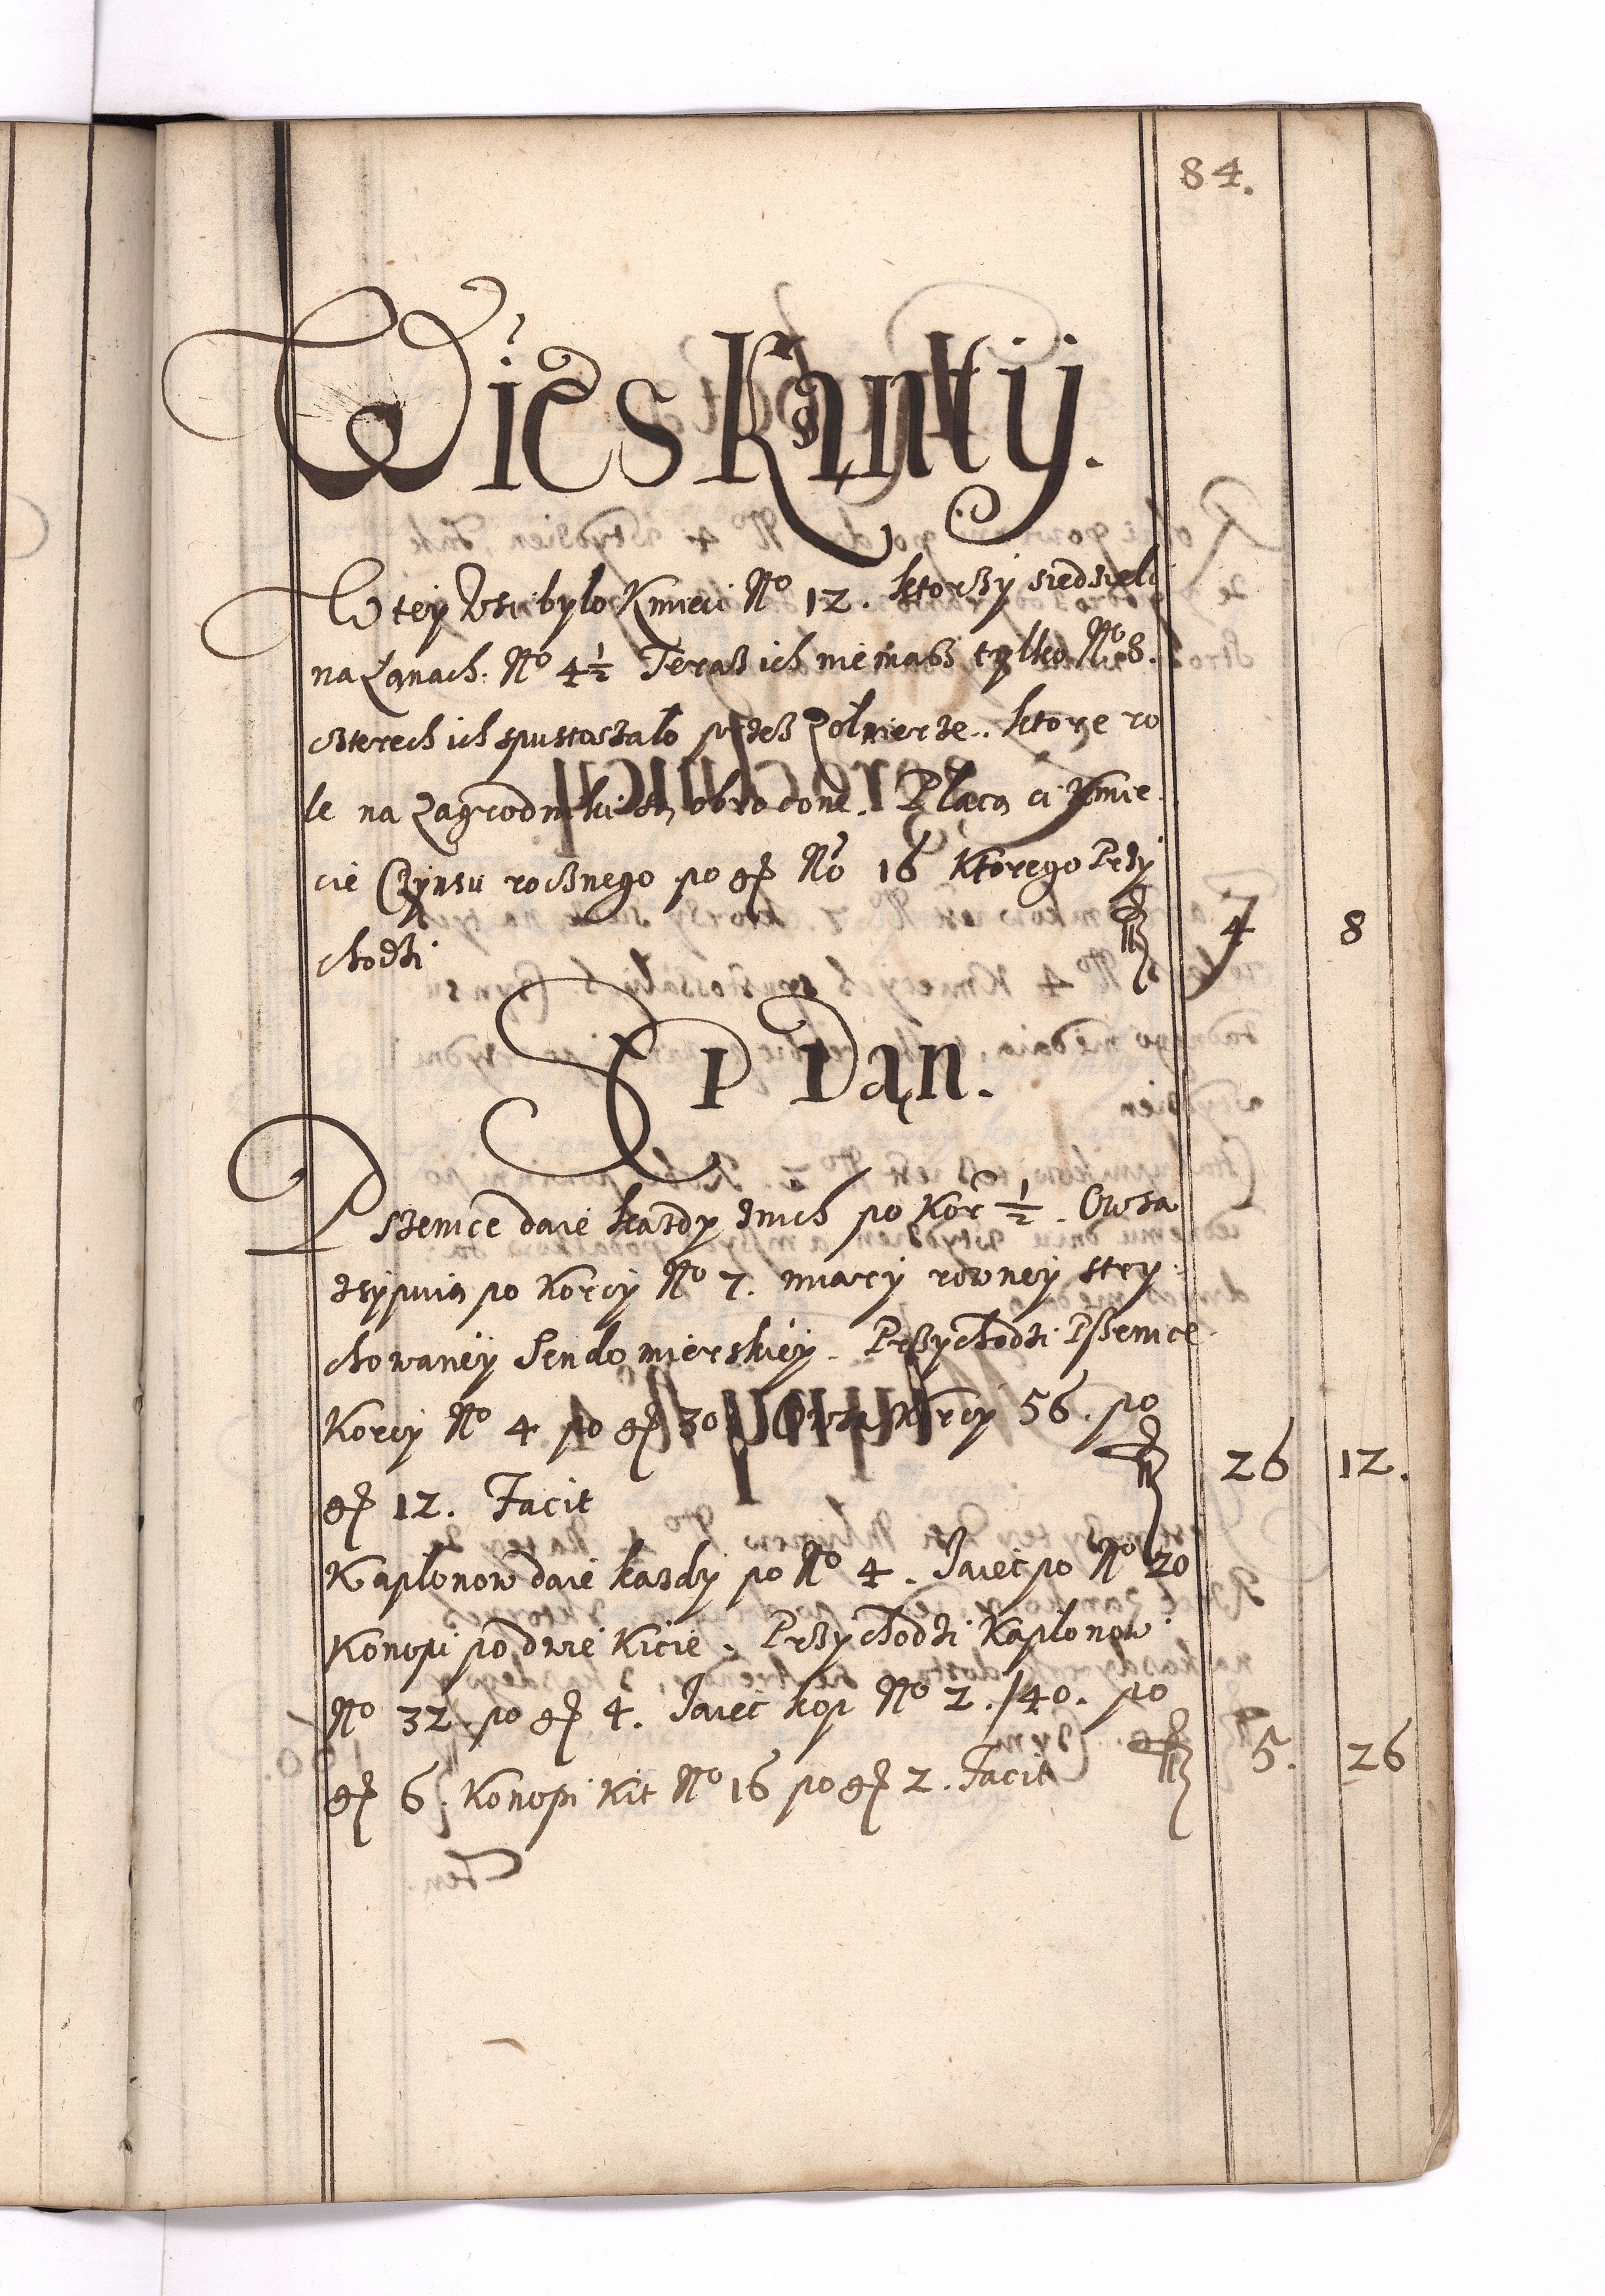 84.
Wieś Kąnty.
W tey Wsi bylo Kmieci No 12. ktorßy siedzieli
na Łanach. No 4½ Teraß ich nie maß tylko No 8.
czterech ich spustoszało przeß Zolnierze. ktore ro
le na Zagrodniki są obrocone. Płacą ci Kmie
cie Czynsu rocßnego po gł No 16 Ktorego Przy
chodzi fl 4 8
Sep Dan.
Pszenice daie kazdy znich po Kor ½. Owsa
zsypuią po Korcy No 7. miary rowney stry
chowaney Sendomierskiey. Przychodzi Pszenice
Korcy No 4 po gł 30. Owsa Korcy 56. po
gł 12. Facit fl 26 12.
Kaplonow daie kazdy po No 4. Jaiec po No 20
Konopi po dwie Kicie. Przychodzi Kaplonow
No 32 po gł 4. Jaiec kop No 2./40. po
gł 6. Konopi Kit No 16 po gł 2. Facit fl 5. 26